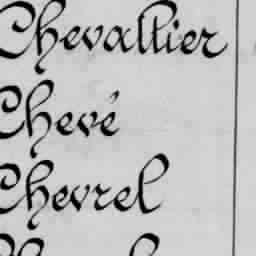 Chevallier
Chevé
Chevrel